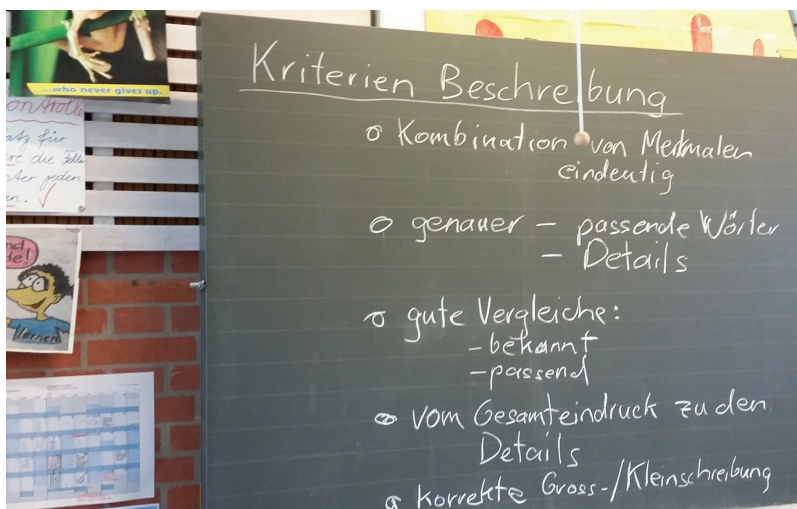 ...who never gives up.
Kriterien Beschreibung
o Kombination von Merkmalen
eindeutig
o genauer – passende Wörter
– Details
o gute Vergleiche:
- bekannt
- passend
o vom Gesamteindruck zu den
Details
o korrekte Gross-/Kleinschreibung
für
die
jeden
lernen